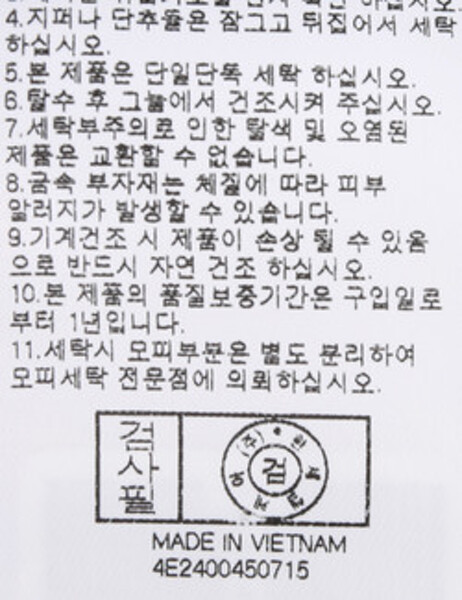 4.지퍼나 단추들은 잠그고 뒤집어서 세탁
하십시오.
5.본 제품은 단일단독 세탁 하십시오.
6.탈수 후 그늘에서 건조시켜 주십시오.
7.세탁부주의로 인한 탈색 및 오염된
제품은 교환할 수 없습니다.
8.금속 부자재는 체질에 따라 피부
알러지가 발생할 수 있습니다.
9.기계건조 시 제품이 손상 될 수 있음
으로 반드시 자연 건조 하십시오.
10.본 제품의 품질보증기간은 구입일로
부터 1년입니다.
11.세탁시 모피부분은 별도 분리하여
모피세탁 전문점에 의뢰하십시오.
검
사
필
(주)
검
MADE IN VIETNAM
4E2400450715